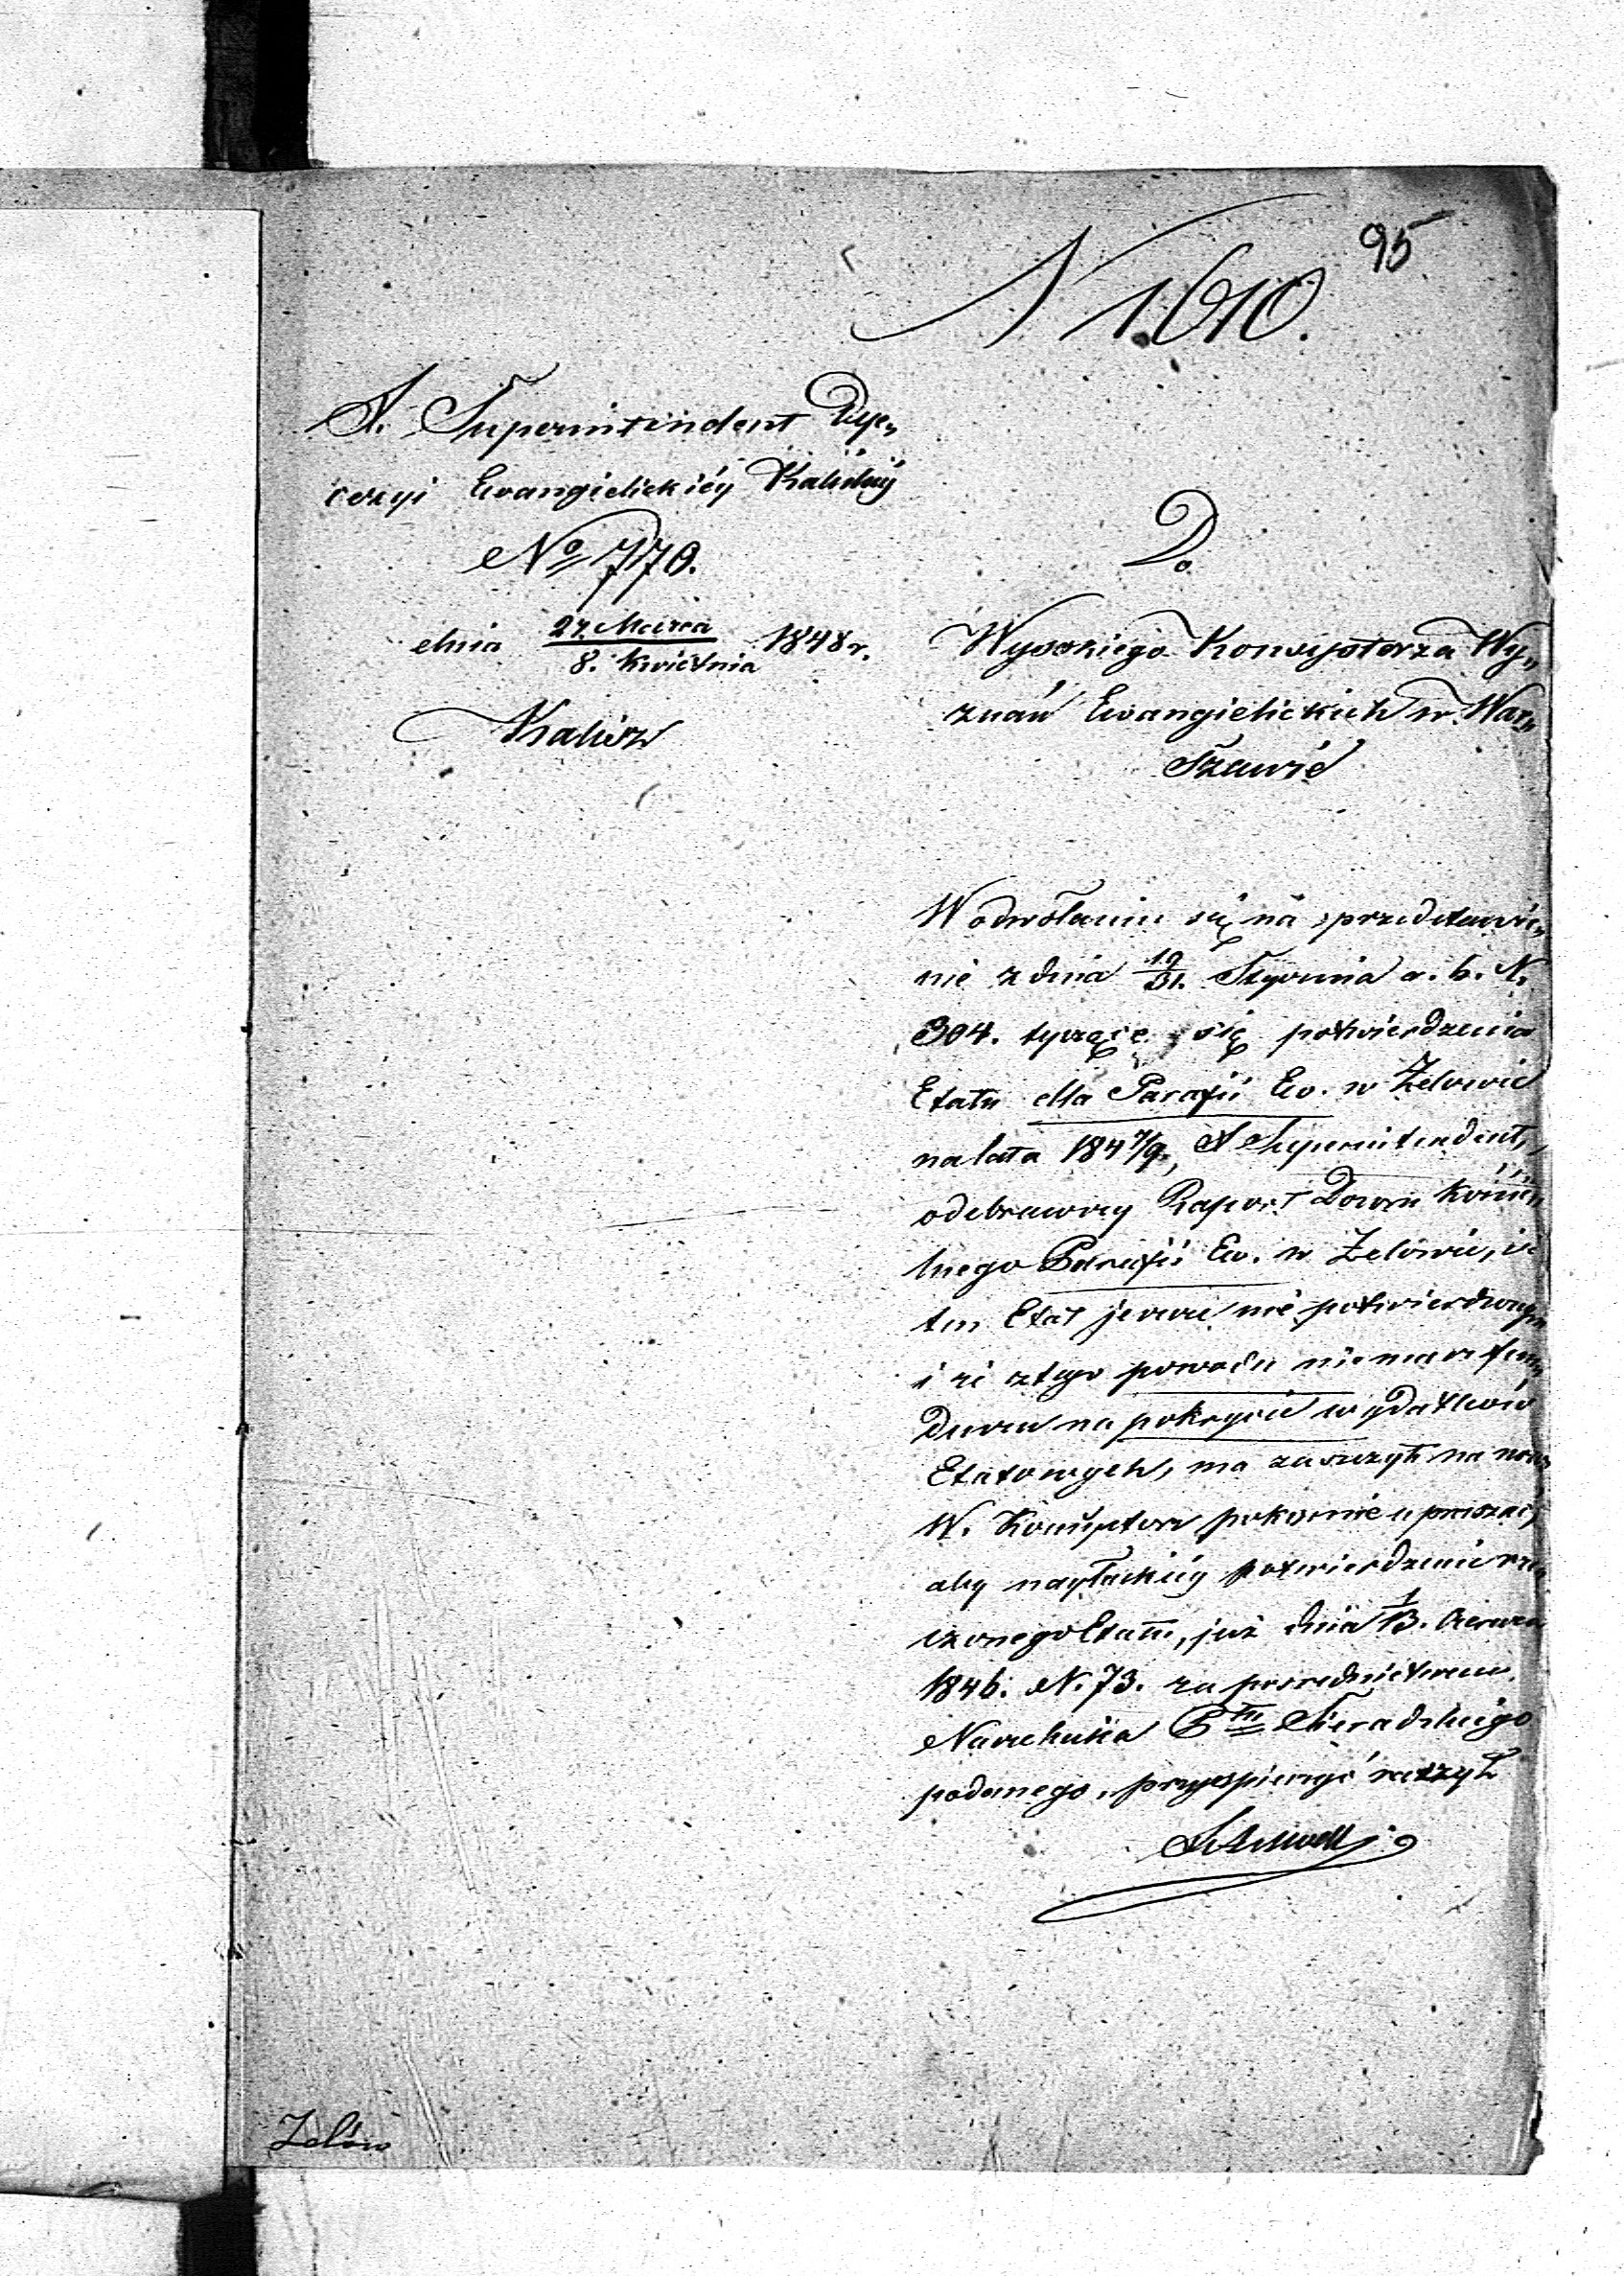 95
N 1610.
A. Superintendent Dye„
cezyi Ewangielickiéy Kaliskiéy
No 770.
dnia 27. Marca / 8. Kwietnia 1848 r.
Kalisz
Do
Wysokiego Konsystorza Wy„
znań Ewangielickich w War„
szawie
W odwołaniu się na przedstawie„
nie z dnia 19/31. Stycznia a. b. N.
304. tyczące się potwierdzenia
Etatu dla Parafii Ew. w Zelowie
na lata 184 7/9, A Superintendent,
odebrawszy Raport Dozoru Kościel„
nego Parafii Ew. w Zelowie, iż
ten Etat jeszcze nie potwierdzony
i że z tego powodu nie ma fun„
duszu na pokrycie wydatków
Etatowych, ma zaszczyt na nowo
W. Konsystorz pokornie upraszać,
aby nayłaskiéy potwierdzenie rze„
czonego Etatu, już dnia 1/13. Czerwca
1846. N. 73. za pośrednictwem
Naczelnika Ptu Sieradzkiego
podanego, przyespieszyć raczył
Zelów